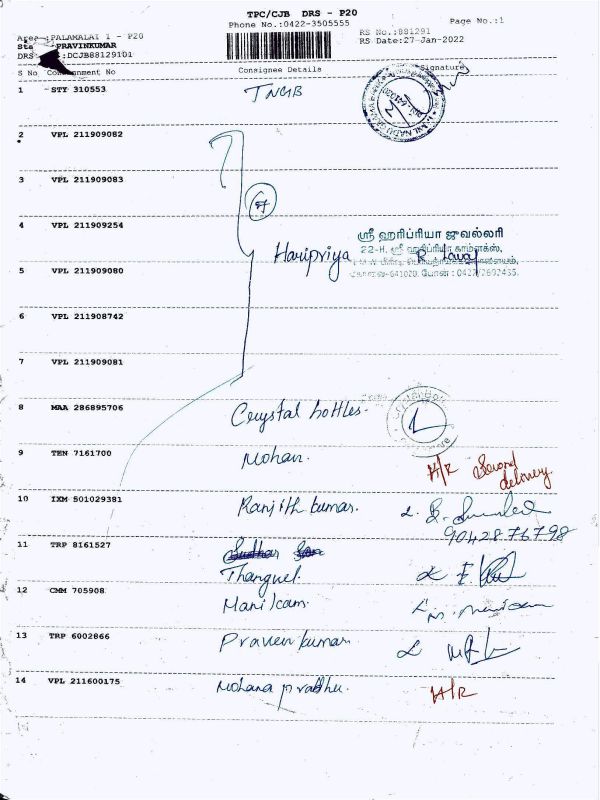 TPC/CJB DRS - P20
Phone No.:0422-3505555
Page No.:1
Area :PALAMALAI 1 - P20
PRAVINKUMAR
DRS :DCJB88129101
RS No.:881291
RS Date:27-Jan-2022
S No Consignment No Consignee Details Signature
1 STY 310553 TNGB
2 VPL 211909082
3 VPL 211909083
4 VPL 211909254
Haripriya
ஸ்ரீ ஹரிப்ரியா ஜுவல்லரி
22-H, ஸ்ரீ ஹரிப்ரியா காம்ளக்ஸ்,
5 VPL 211909080
6 VPL 211908742
7 VPL 211909081
8 MAA 286895706 Crystal bottles.
9 TEN 7161700 Mohan. H/R Second delivery
10 IXM 501029381 Ranjith kumar.
9042876798
11 TRP 8161527
Thangvel.
12 CMM 705908 Manikam.
13 TRP 6002866 Praveen kumar
14 VPL 211600175 Mohana prabhu. H/R